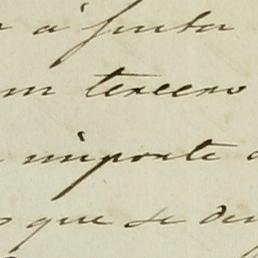 a junta
m tercero
importe
que se